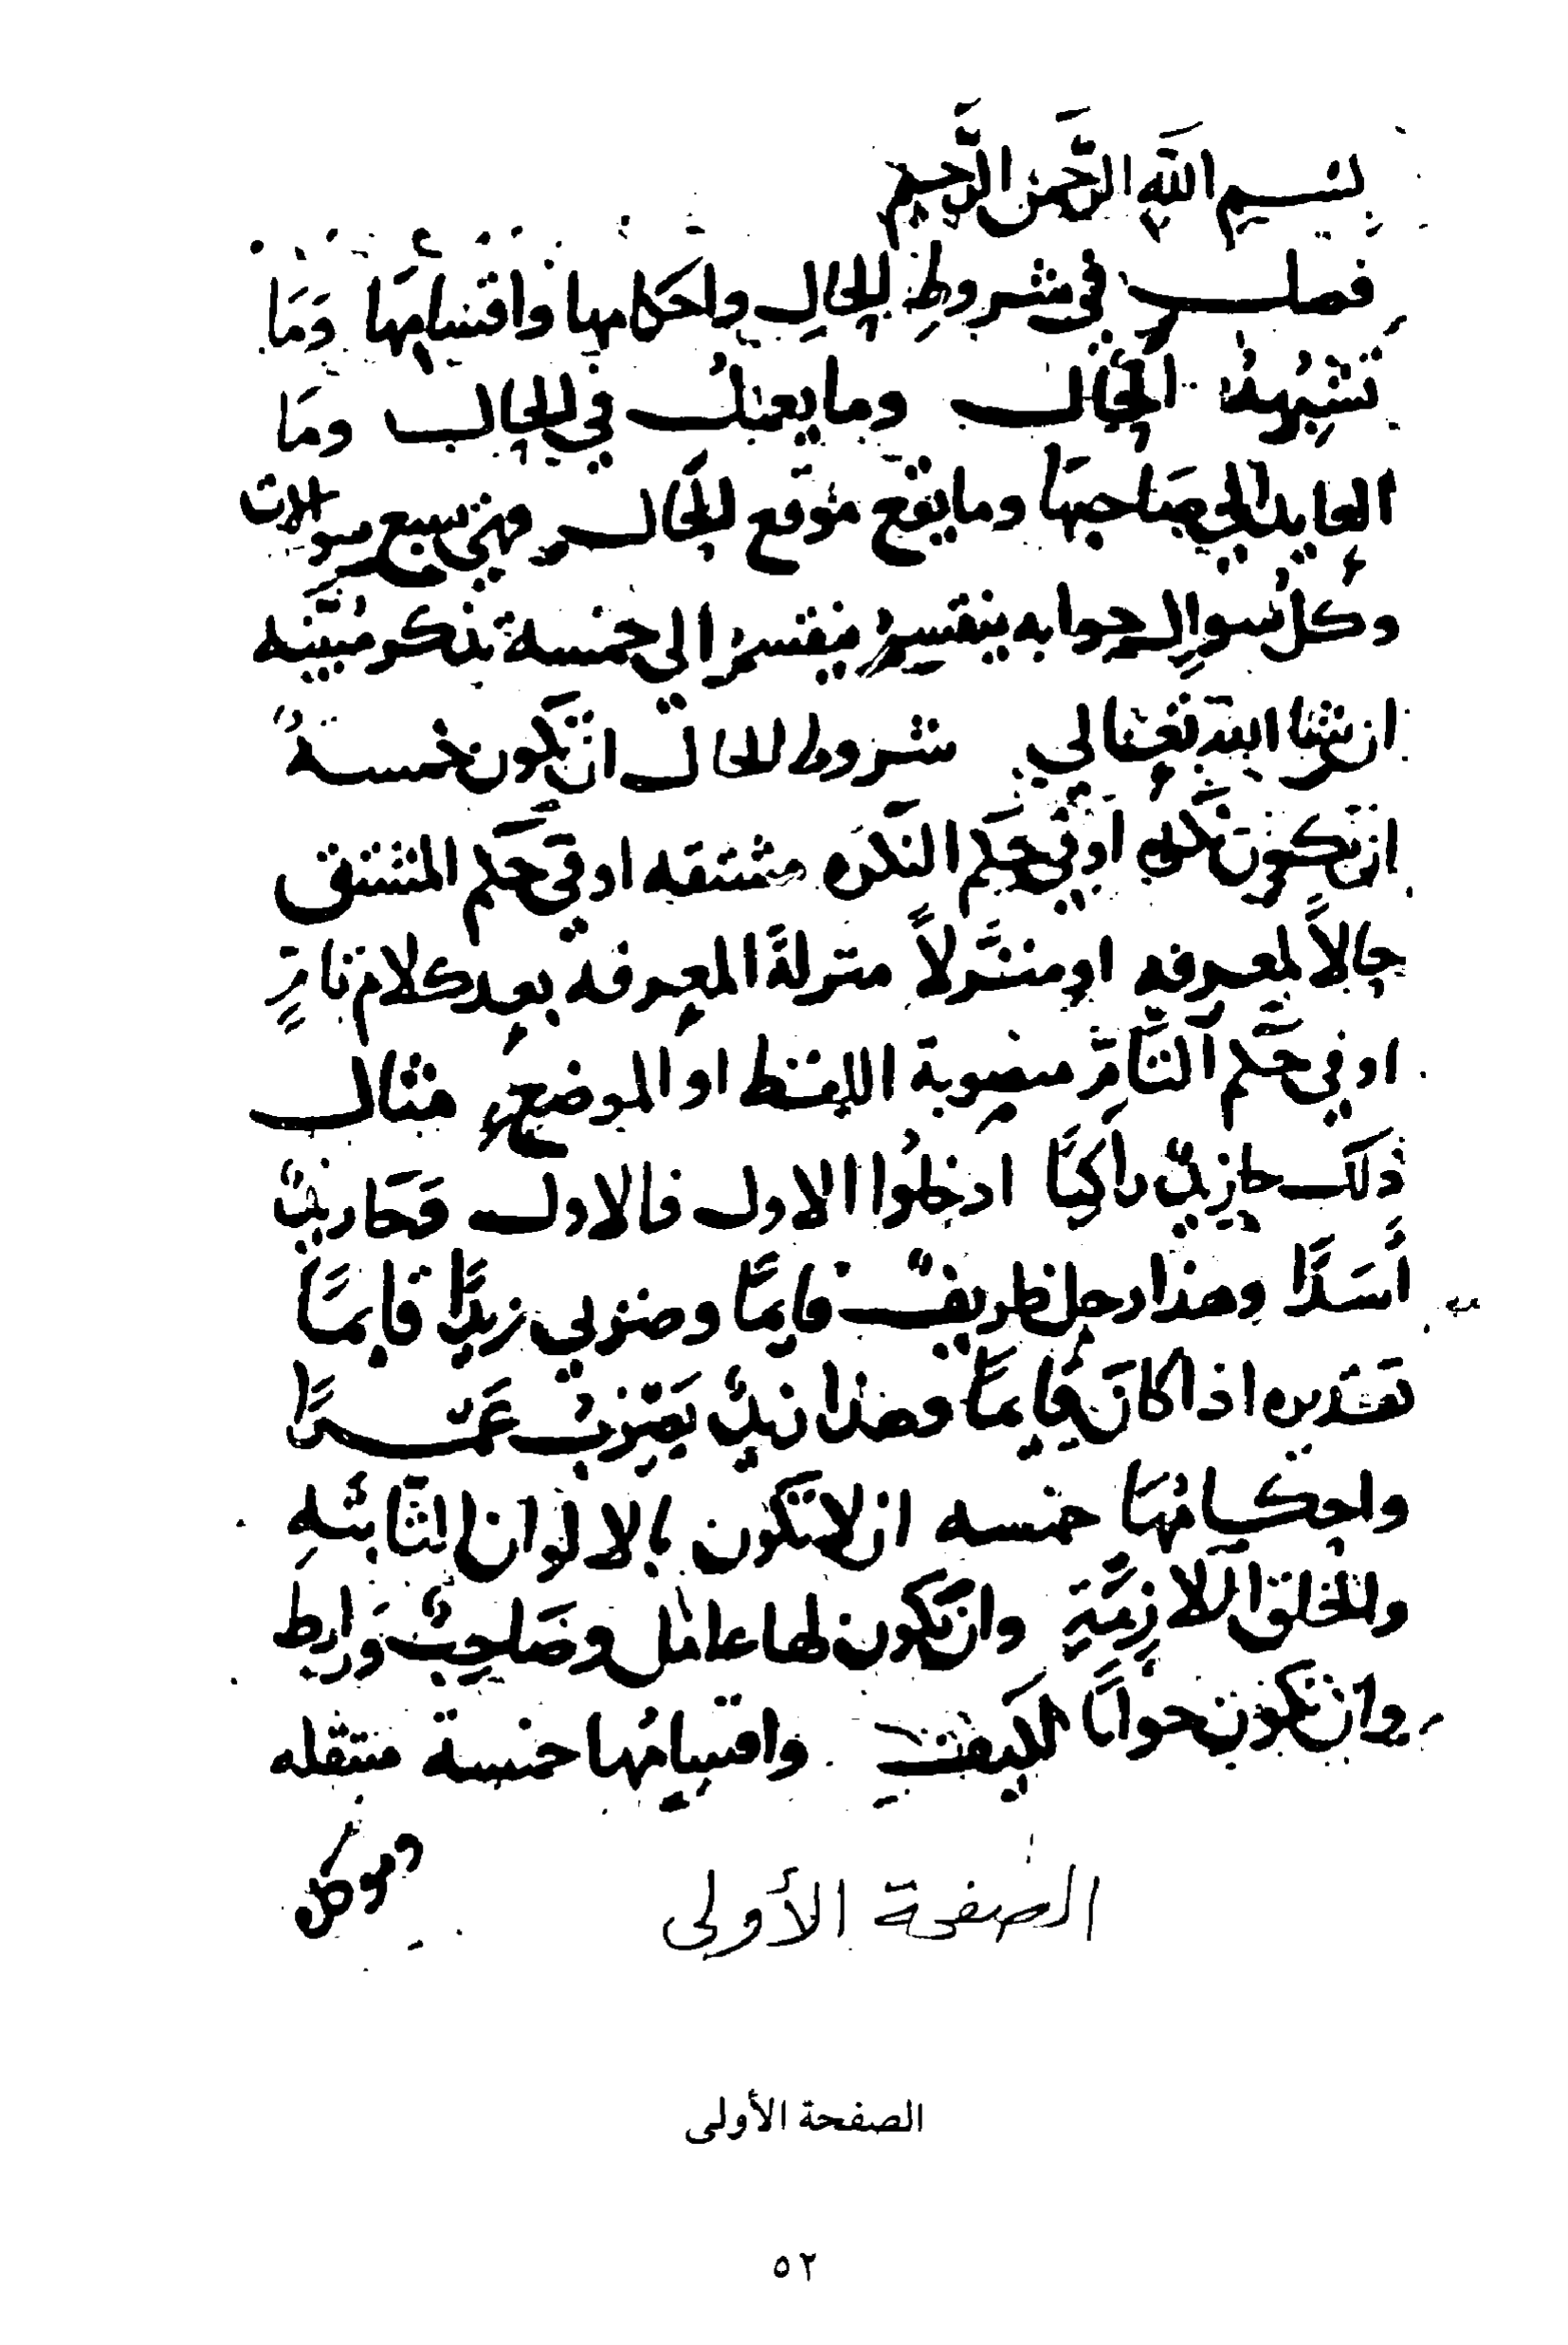 بسم اللَّه الرَّحمن الرَّحيم
فصل في شروطِ الحالِ واحكامها واقسامِهَا وَمَا
تشبهه الحال وما يعمل في الحال ومَا
العايد الى صَاحبهَا وما يقع موقع الحال فهي سبع سوالات
وكل سوالٍ جوابه ينقسم ينقسم الى خمسة تذكر مُبَيَّنه
ان شا الله تعالي شروط الحال ان تكون خمسةً
ان تكون نكرة او في حكم النكره مشتقه او في حكم المشتق
حالاً لمعرفه او منزَّلاً منزلةَ المعرفه بعد كلام تامٍ
او في حكم التَّامِّ منصوبة اللفظ او الموضع مثال
ذلك جا زيدٌ راكبًا ادخلُوا الاول فالاول وَجَا زيدٌ
أَسَدًا وهذا رجل ظريفٌ قايمًا وضربي زيدًا قايمًا
تقديره اذا كانَ قايمًا وهذا زيدٌ يَضربُ عَمرًا
واحكامُهَا خمسه ان لا تكون بالالوان الثَّابتَهِ
والخلق اللازِمَةِ وان تكون لها عامل وصَاحِبٌ وَرابط
وان تكون جوابًا لكيفَ واقسامُها خمسة منتقله
وموكل
الصفحة الأولى
الصفحة الأولى
٥٢